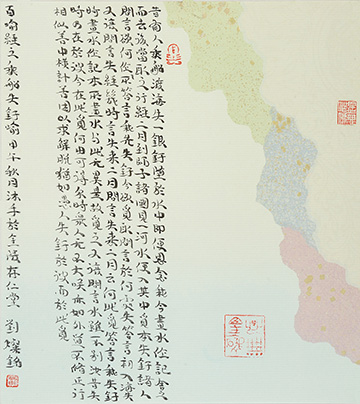 昔有人乘船渡海失一銀釪墮於水中即便思念我今畫水作記舍之
而去後當取之行經二月到師子諸國見一河水便入其中覓本失釪諸人
問言欲何所作答言我先失釪今欲覓取問言於何處失答言初入海失
又復問言失經幾時言失來二月問言失來二月云何此覓答言我失釪
時畫水作記本所畫水與此无異是故覓之又復問言水雖不別汝昔失
時乃在於彼今在此覓何由可得爾時眾人无不大笑亦如外道不修正行
相似善中橫計苦困以求解脫猶如愚人失釪於彼而於此覓
百喻經之乘船失釪喻 甲午秋月沐手於金陵存仁堂 劉燦銘